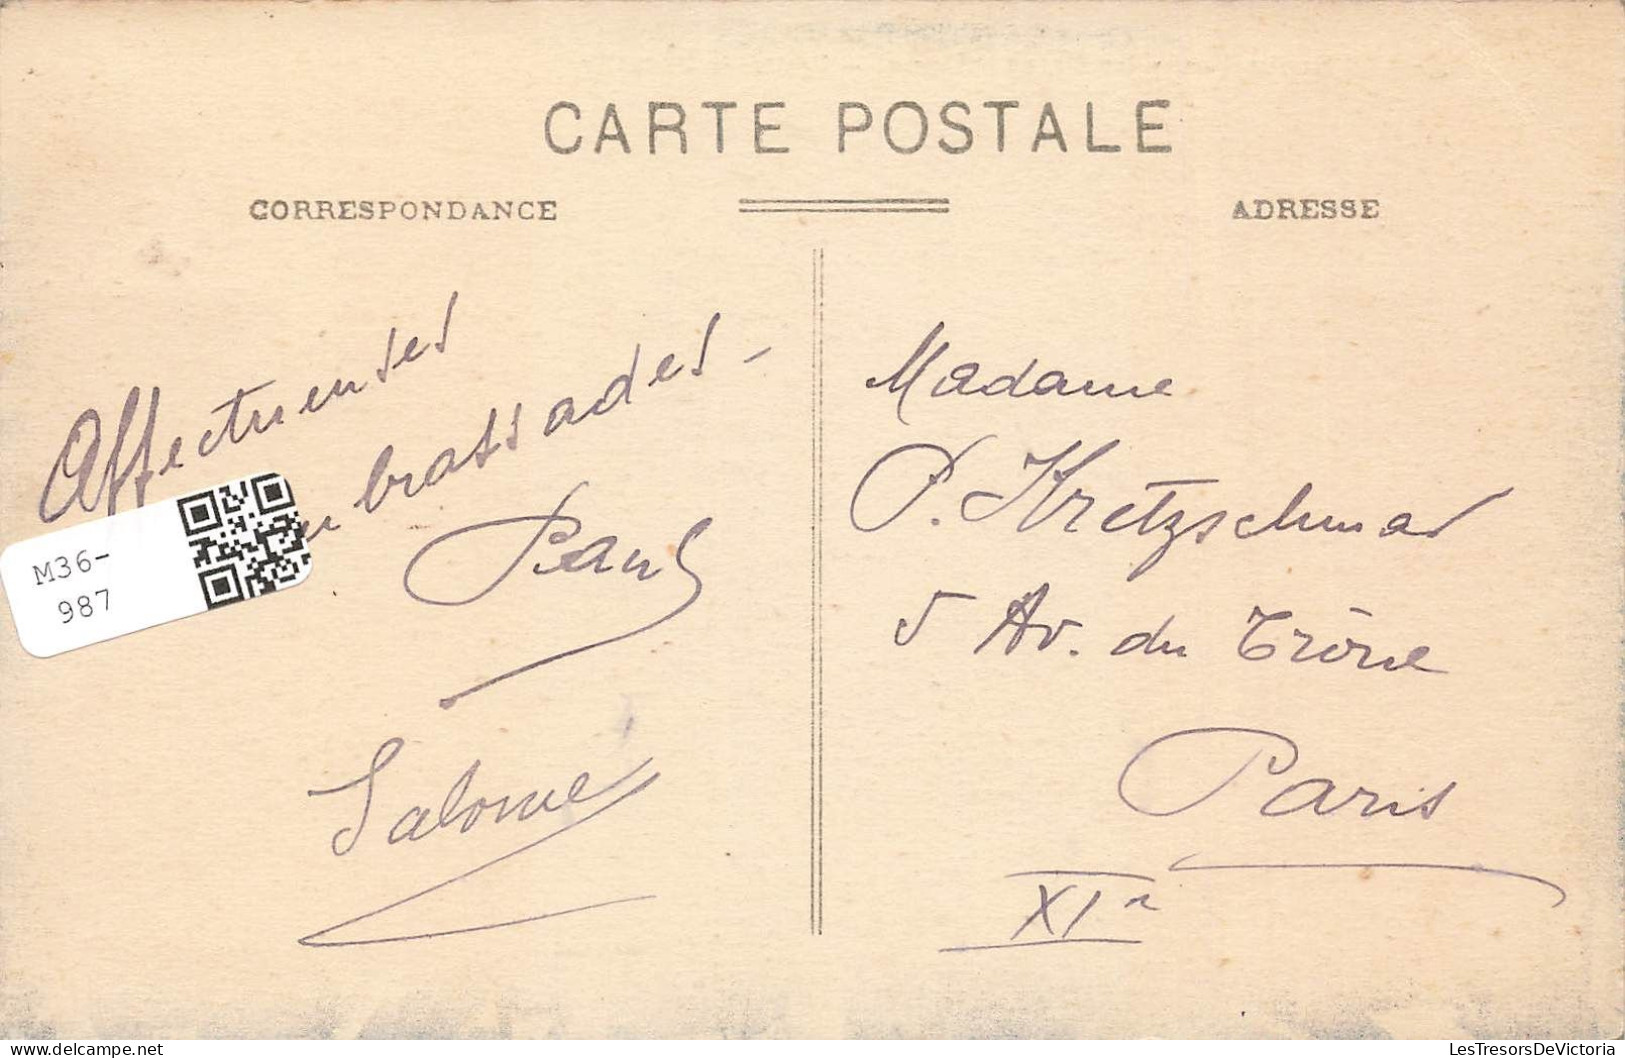 CARTE POSTALE
CORRESPONDANCE
ADRESSE
Affectueuses
embrassades -
Paul
Salomé
Madame
P. Kretzschmar
5 Av. du Trône
Paris
XIe
M36-
987
LesTresorsDeVictoria